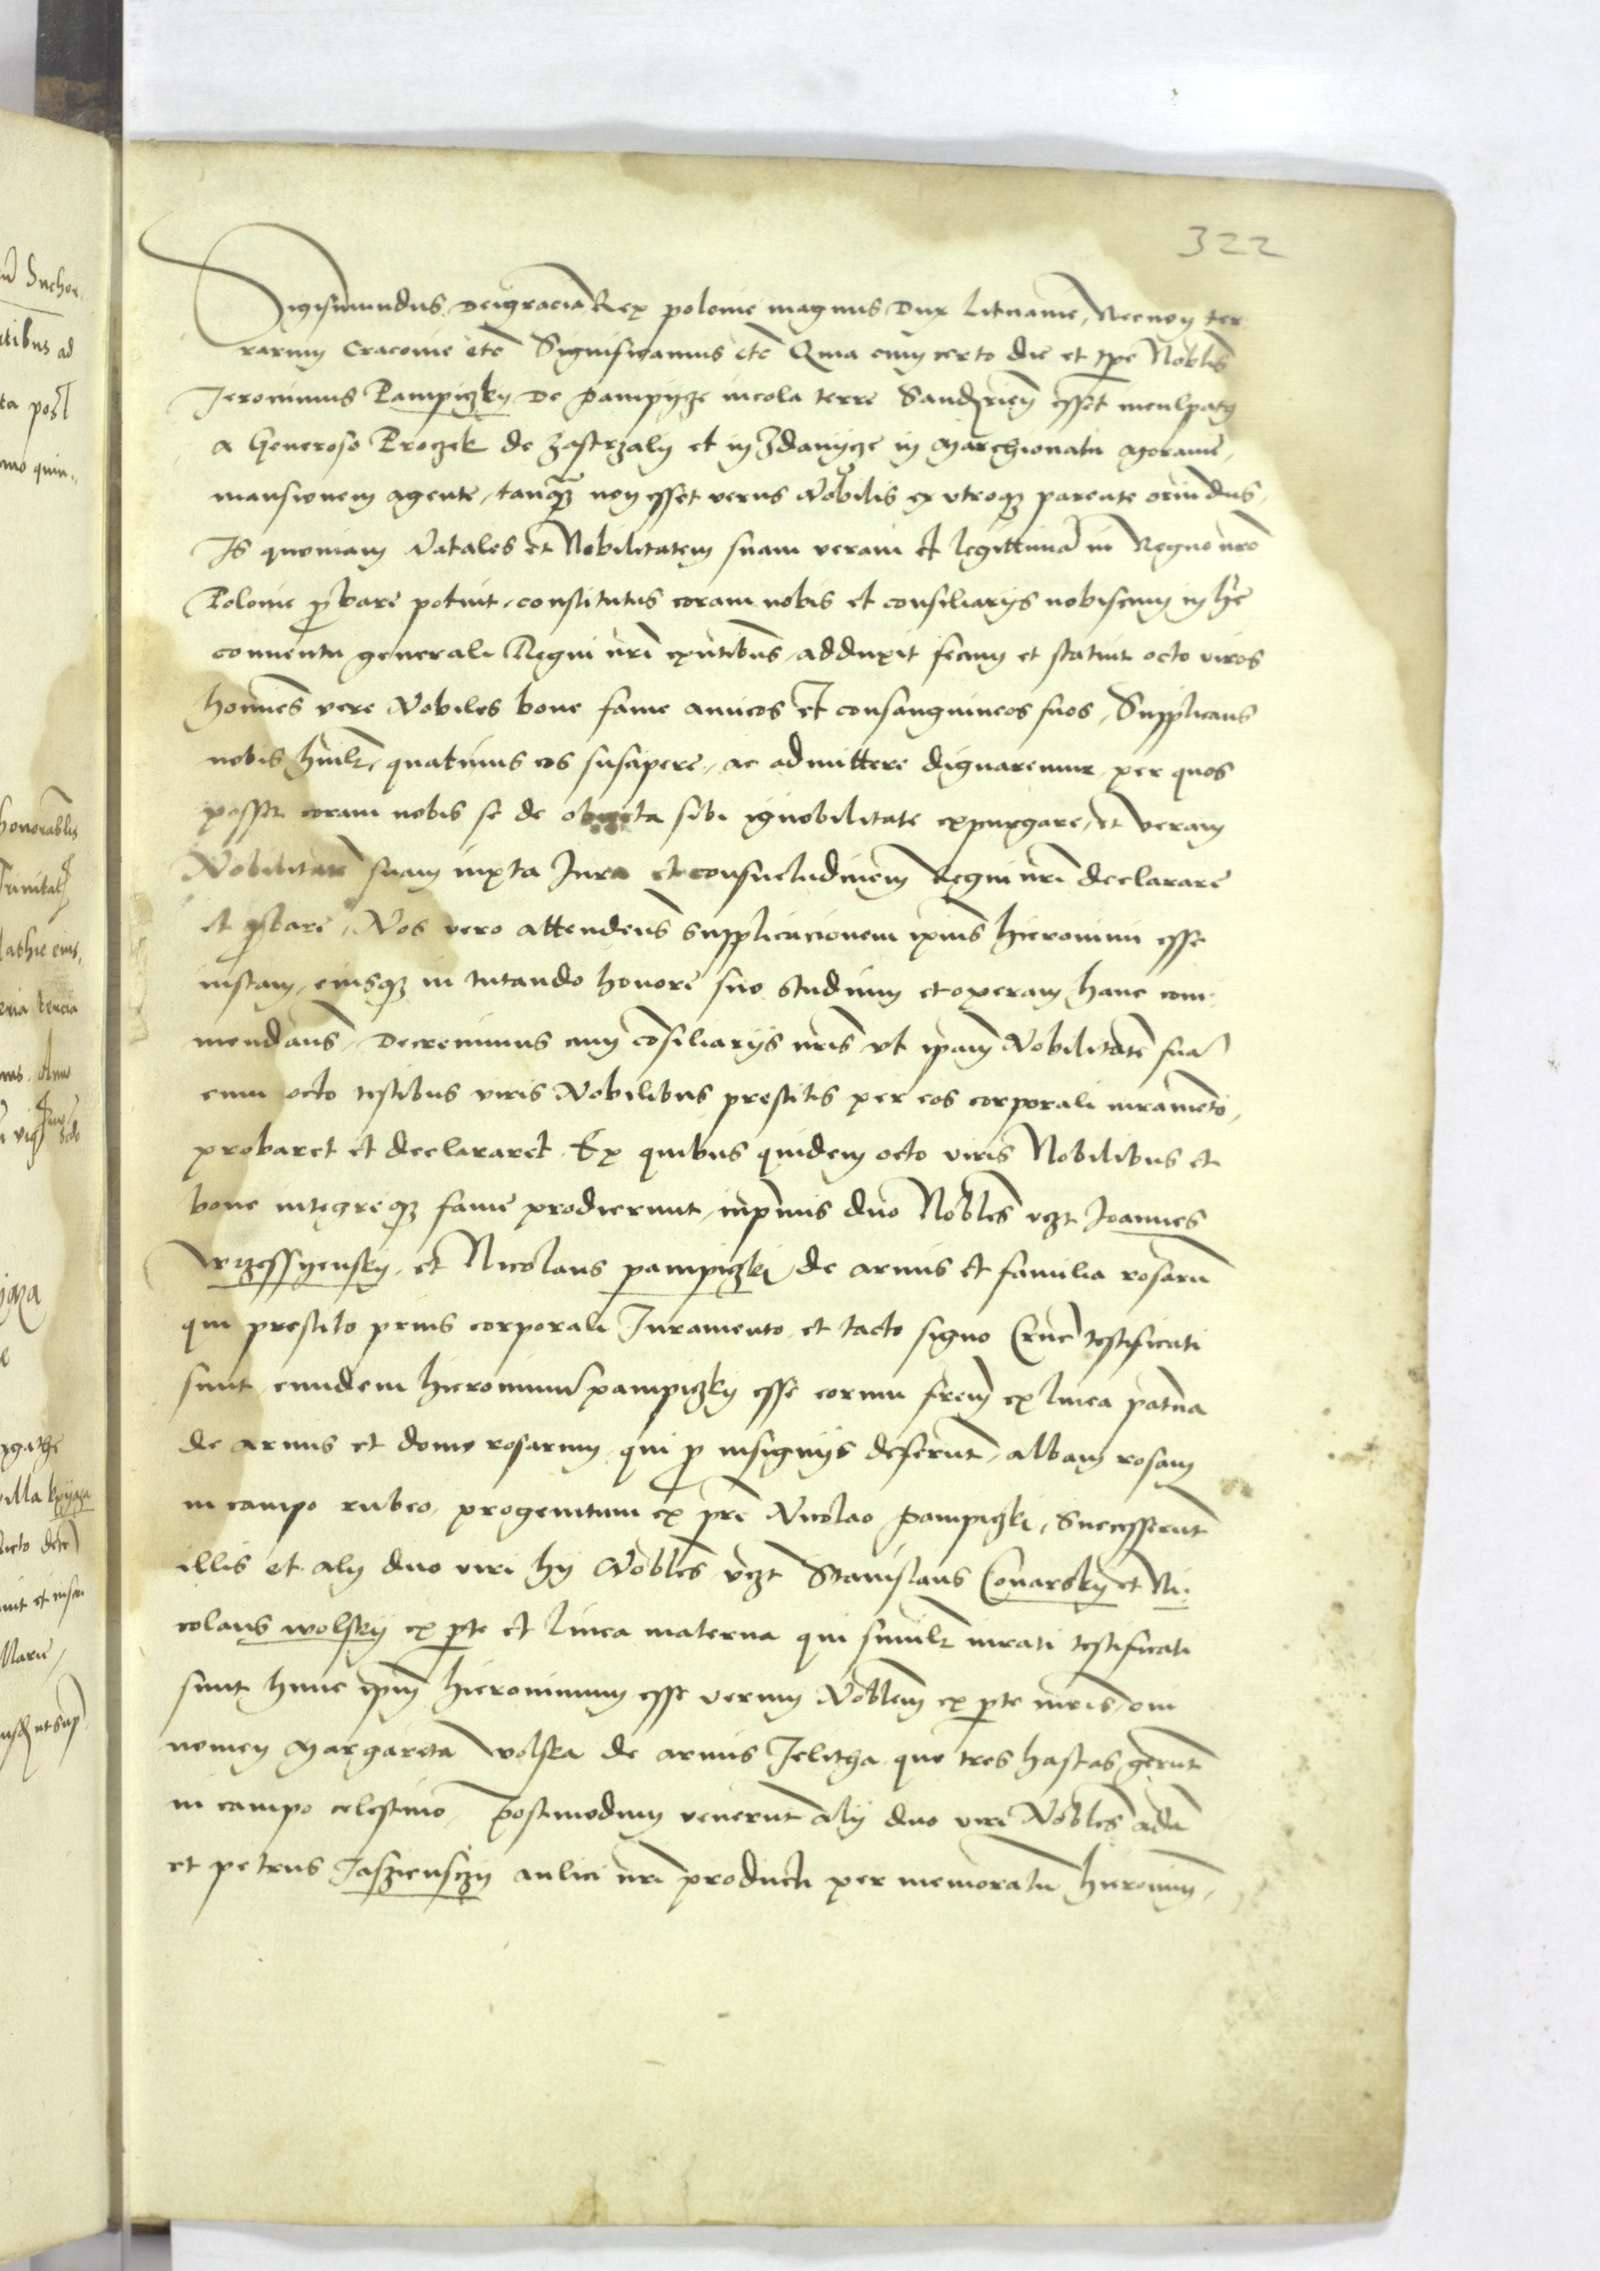 322
Sigismundus Deigracia Rex polonie magnus Dux Lituanie, Necnon ter
rarum Cracovie etc̄ Significamus etc̄ Quia cum certo die et tp̄e Nobl̄is
Jeronimus Pampiczky de Pampycze incola terre Sandomirien̄ esset inculpatus
a Generoso Proczek de Zastrzaly et in Zdanycze in Marchionatu Moravie,
mansionem agente, tanq̄ non esset verus Nobilis ex utroq parente oriundus,
Is quoniam Natales et Nobilitatem suam veram et legittimā in Regno nr̄o
Polonie p̄bare potuit, constitutus coram nobis et consiliarijs nobiscum in h̄c
conventu generali Regni nr̄i exn̄tibus, adduxit secum et statuit octo viros
homines vere Nobiles bone fame amicos et consanguineos suos, Supplicans
nobis humilr̄, quatinus eos suscipere, ac admittere dignaremur, per quos
posset coram nobis se de obiecta sibi ignobilitate expurgare, et veram
Nobilitatē suam iuxta Jura et consuetudinem Regni nr̄i declarare
et p̄bare, Nos vero attendens supplicacionem ip̄ius Hieronimi esse
iustam, eiusq in tutando honore suo studium et operam hanc com
mendans, Decrevimus cum cōsiliarijs nr̄is ut ip̄am Nobilitatē suā
cum octo testibus viris Nobilibus prestitis per eos corporali iuramēto,
probaret et declararet. Ex quibus quidem octo viris Nobilibus et
bone integreq fame prodierunt, inp̄mis duo Nobl̄es vcz̄t Joannes
Wrzessyensky, et Nicolaus pampiczki de armis et familia rosarū
qui prestito prius corporali Juramento et tacto signo Crucē testificati
sunt eundem Hieronimū pampiczky esse eorum fr̄em ex linea patn̄a
de armis et domo rosarum, qui p̄ insignijs deferūt, albam rosam
in campo rubeo, progenitum ex pr̄e Nicolao Pampiczki, Successerūt
illis et alij duo viri hij Nobl̄es vcz̄t Stanislaus Conarsky et Ni
colaus wolsky ex p̄te et linea materna qui similr̄ iurati testificati
sunt hunc ip̄m Hieronimum esse verum Nobl̄em ex p̄te mr̄is, cui
nomen Margareta Wolska de armis Jelitha que tres hastas gerūt
in campo celestino, Postmodum venerūt alij duo viri Nobl̄es adā
et petrus Jasziensczy aulici nr̄i producti per memoratū Hieronim̄,